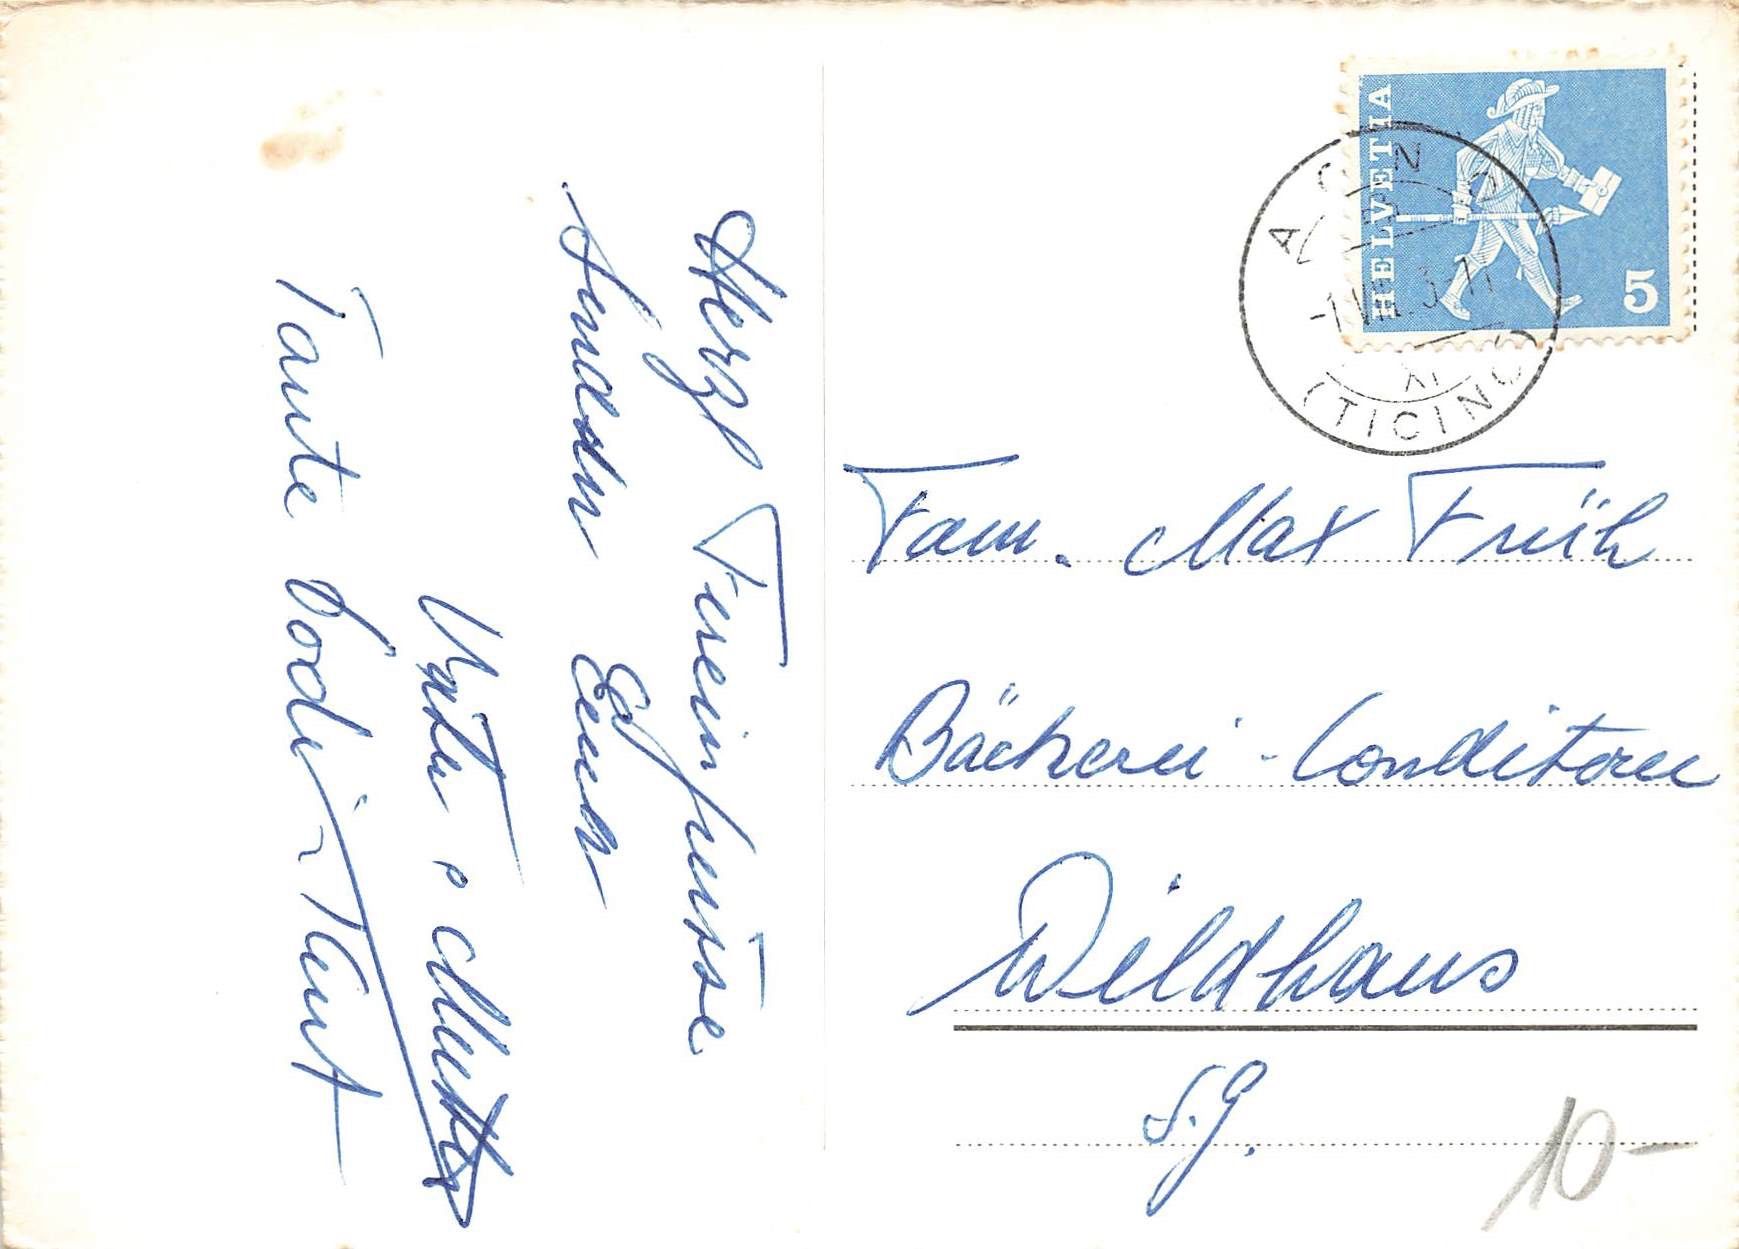 Herzl Feriengrüsse
senden Euch
Vater & Mutter
Tante Bodi-Kurt
HELVETIA
5
AGNO
(TICINO)
Fam. Max Früh
Bäckerei - Conditorei
Wildhaus
S.G.
10-